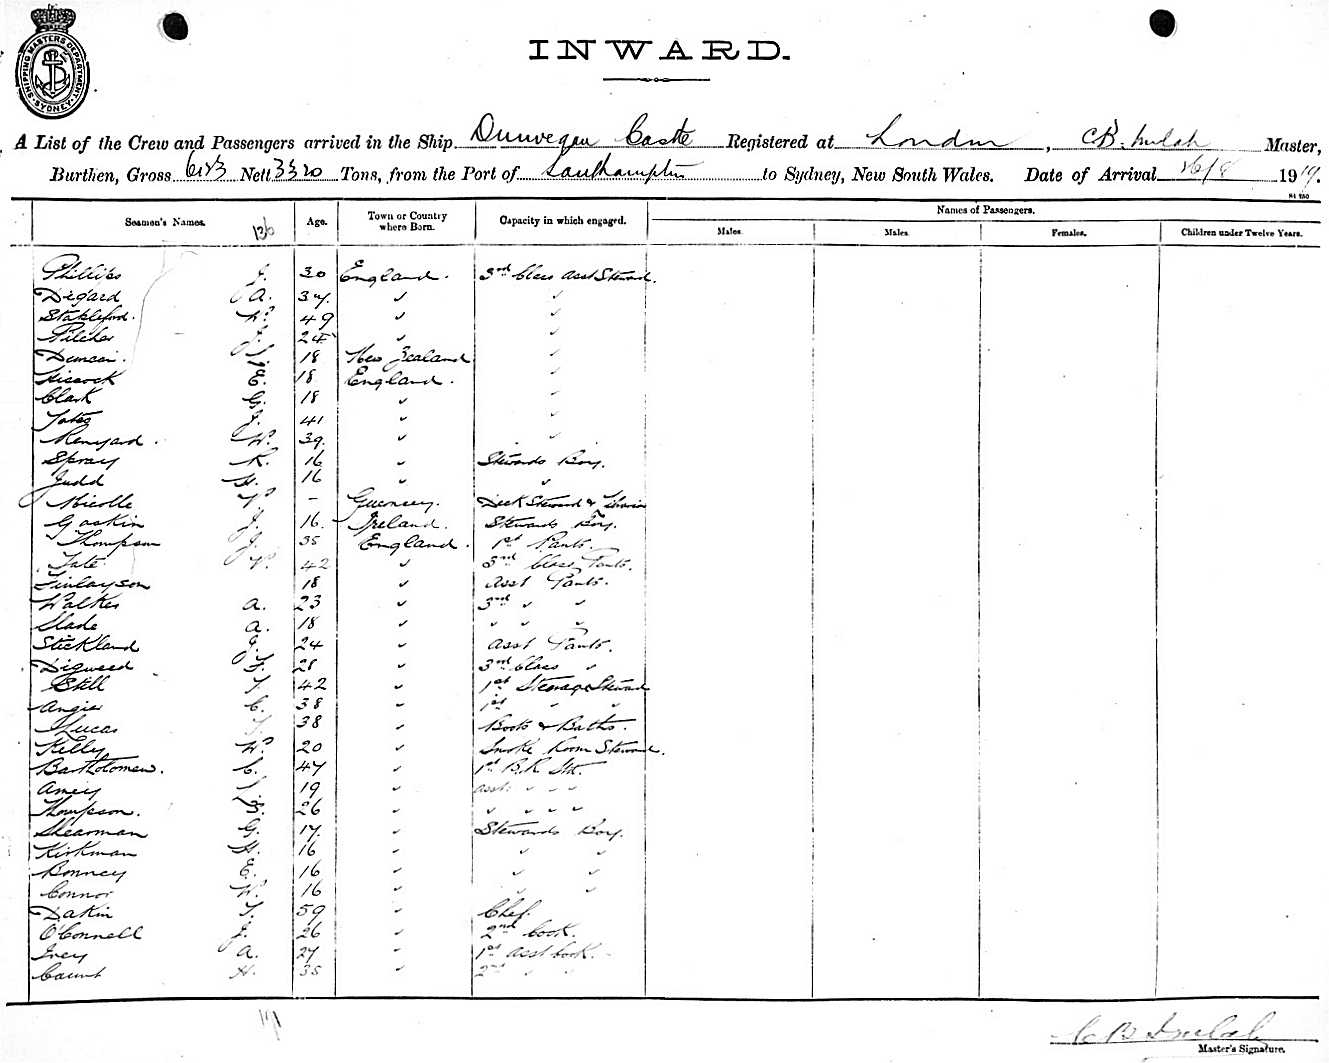 SHIPPING MASTERS DEPARTMENT. SYDNEY.
INWARD.
A List of the Crew and Passengers arrived in the Ship Dunvegan Castle Registered at London, C B. Master,
Burthen, Gross Nett 3320 Tons, from the Port of Southampton to Sydney, New South Wales. Date of Arrival 26/8 1919.
Seamen's Names. Age. Town or Country where Born. Capacity in which engaged. Names of Passengers.
Males Males Females. Children under Twelve Years.
Phillips J. 30 England. 3rd Class Asst Steward.
Degard A. 37. " "
Stableford. W. 49 " "
Pilcher J. 24 " "
Duncan. 18 New Zealand "
Hiscock E. 18 England. "
Clark G. 18 " "
Yates J. 41 " "
Renyard. W. 39. " "
Spray R. 16 " Stewards Boy.
Judd H. 16 " "
Nicolle W. - Guernsey. Deck Steward &
Gaskin J. 16. Ireland. Stewards Boy.
Thompson J. 35 England. 1st Pants.
Tate W. 42 " 3rd Class Pants.
Finlayson 18 " Asst Pants.
Walker A. 23 " 3rd " "
Slade A. 18 " " " "
Stickland G. 24 " Asst Pants.
Digweed F. 28 " 3rd Class "
Still T. 42 " 1st Steerage Steward
Angier C. 38 " 1st " "
Lucas T. 38 " Boots & Baths.
Kelly W. 20 " Smoke Room Steward.
Bartholomew. C. 47 " 1st B.R. Stk.
Amey 19 " Asst. " " "
Thompson. G. 26 " " " " "
Shearman G. 17. " Stewards Boy.
Kirkman H. 16 " " "
Bonney E. 16 " " "
Connor W. 16 " " "
Dakin T. 59 " Chef.
O'Connell J. 26 " 2nd Cook.
Ivey A. 27 " 1st Asst Cook.
Count H. 35 " 2nd " "
Master's Signature.